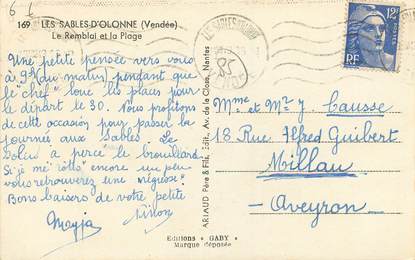 169 LES SABLES-D'OLONNE (Vendée)
Le Remblai et la Plage
Une petite pensée vers vous
à 9h (du matin) pendant que
le "chef" loue les places pour
le départ le 30. Nous profitons
de cette occasion pour passer la
journée aux Sables. Le
Soleil a percé le brouillard
Si je me rôtis encore un peu
vous retrouverez une négresse!
Bons baisers de votre petite
12F
RF
85
Mme et Mr Y. Causse
18 Rue Alfred Guibert
Millau
Aveyron
ARIAUD Père & Fils, Edit., Av. de la Close, Nantes
Editions "GABY"
Marque déposée